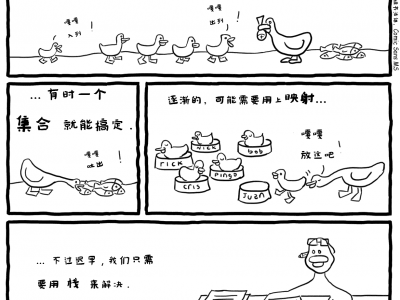 嘎嘎
入列
!
嘎嘎
出列
!
Comic Sans MS
... 有时一个
集合 就能搞定.
嘎嘎
吐出
!
逐渐的, 可能需要用上映射...
NICK
bob
rick
pingo
cris
Juan
嘎嘎
放这吧
!
... 不过迟早, 我们只需
要用 栈 来解决.